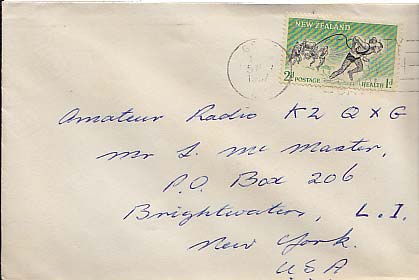 NEW ZEALAND
2d POSTAGE HEALTH 1d
Amateur Radio K2 QXG
Mr S. Mc Master,
P.O. Box 206
Brightwaters, L.I.
New York.
U.S.A